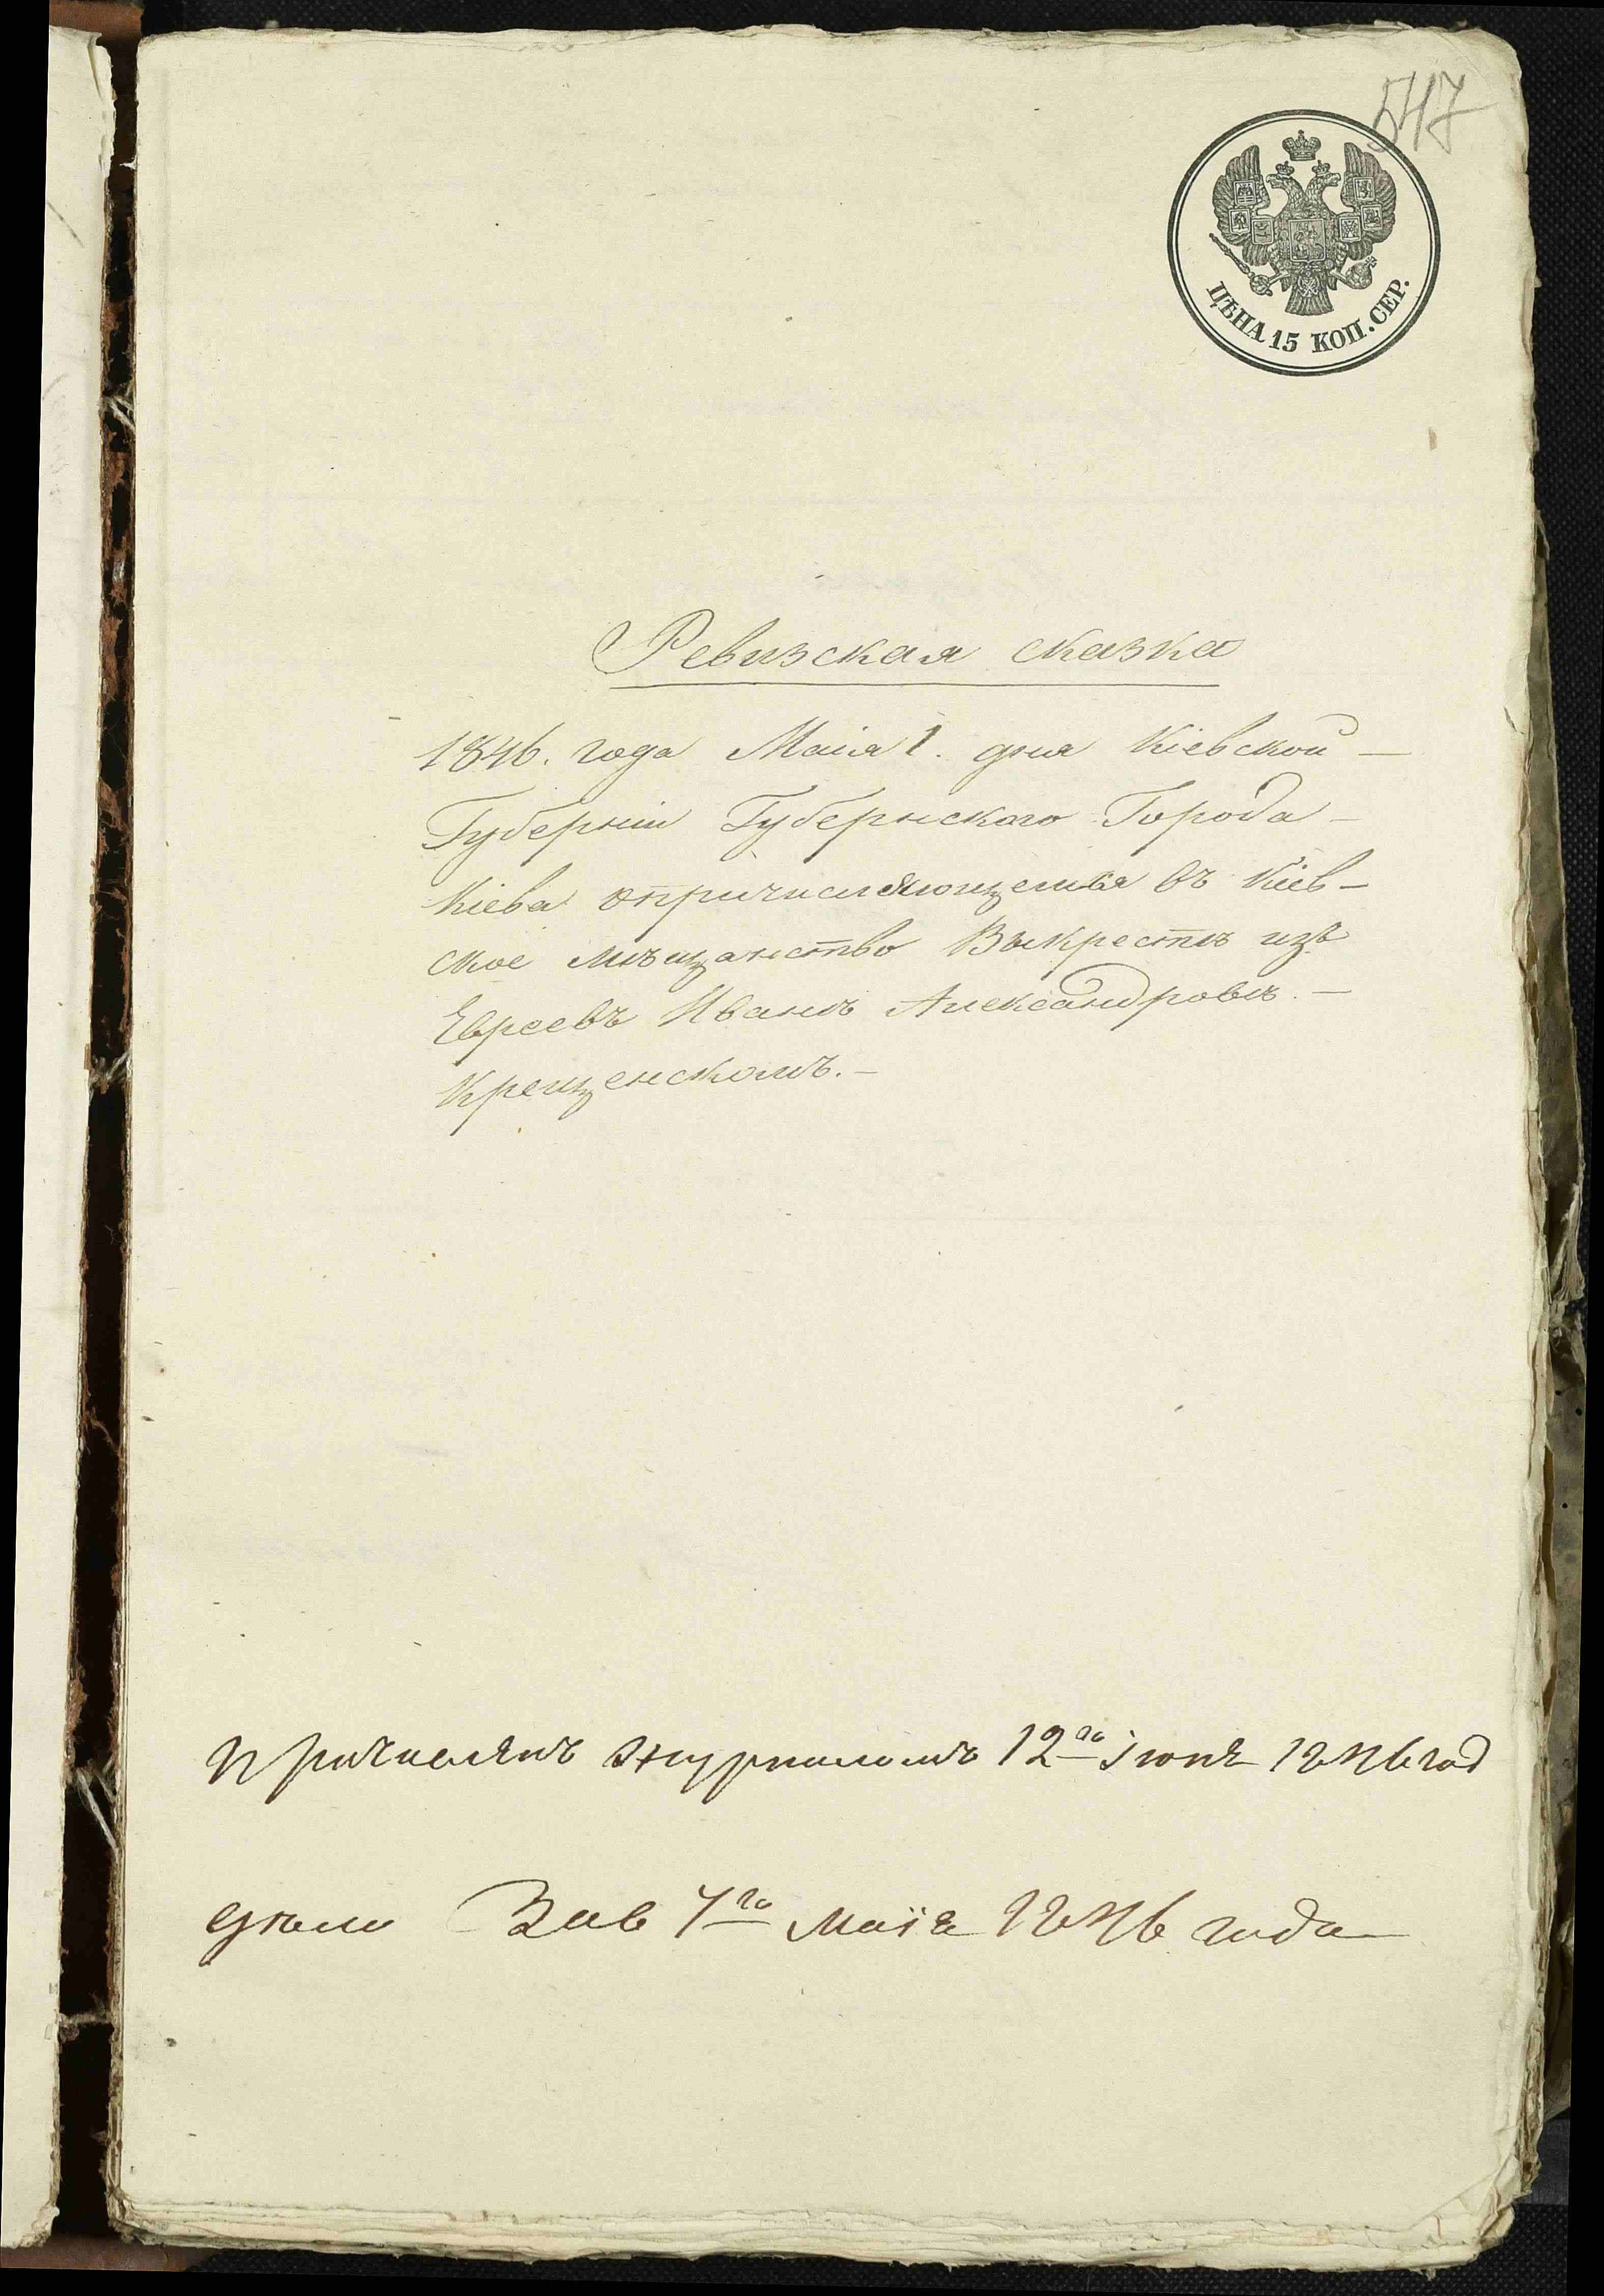 547
ЦѢНА 15 КОП. СЕР.
Ревизская сказка
1846. года Маія 1. дня Кіевской —
Губерніи Губернскаго Города —
Кіева опричисляющемся въ Кіев-
ское мѣщанство Выкрестѣ изъ
Евреевъ Иванѣ Александровѣ. —
Крещенскомъ. —
Причисленъ журналомъ 12го іюня 1846 год
дѣло 4го маія 1846 года